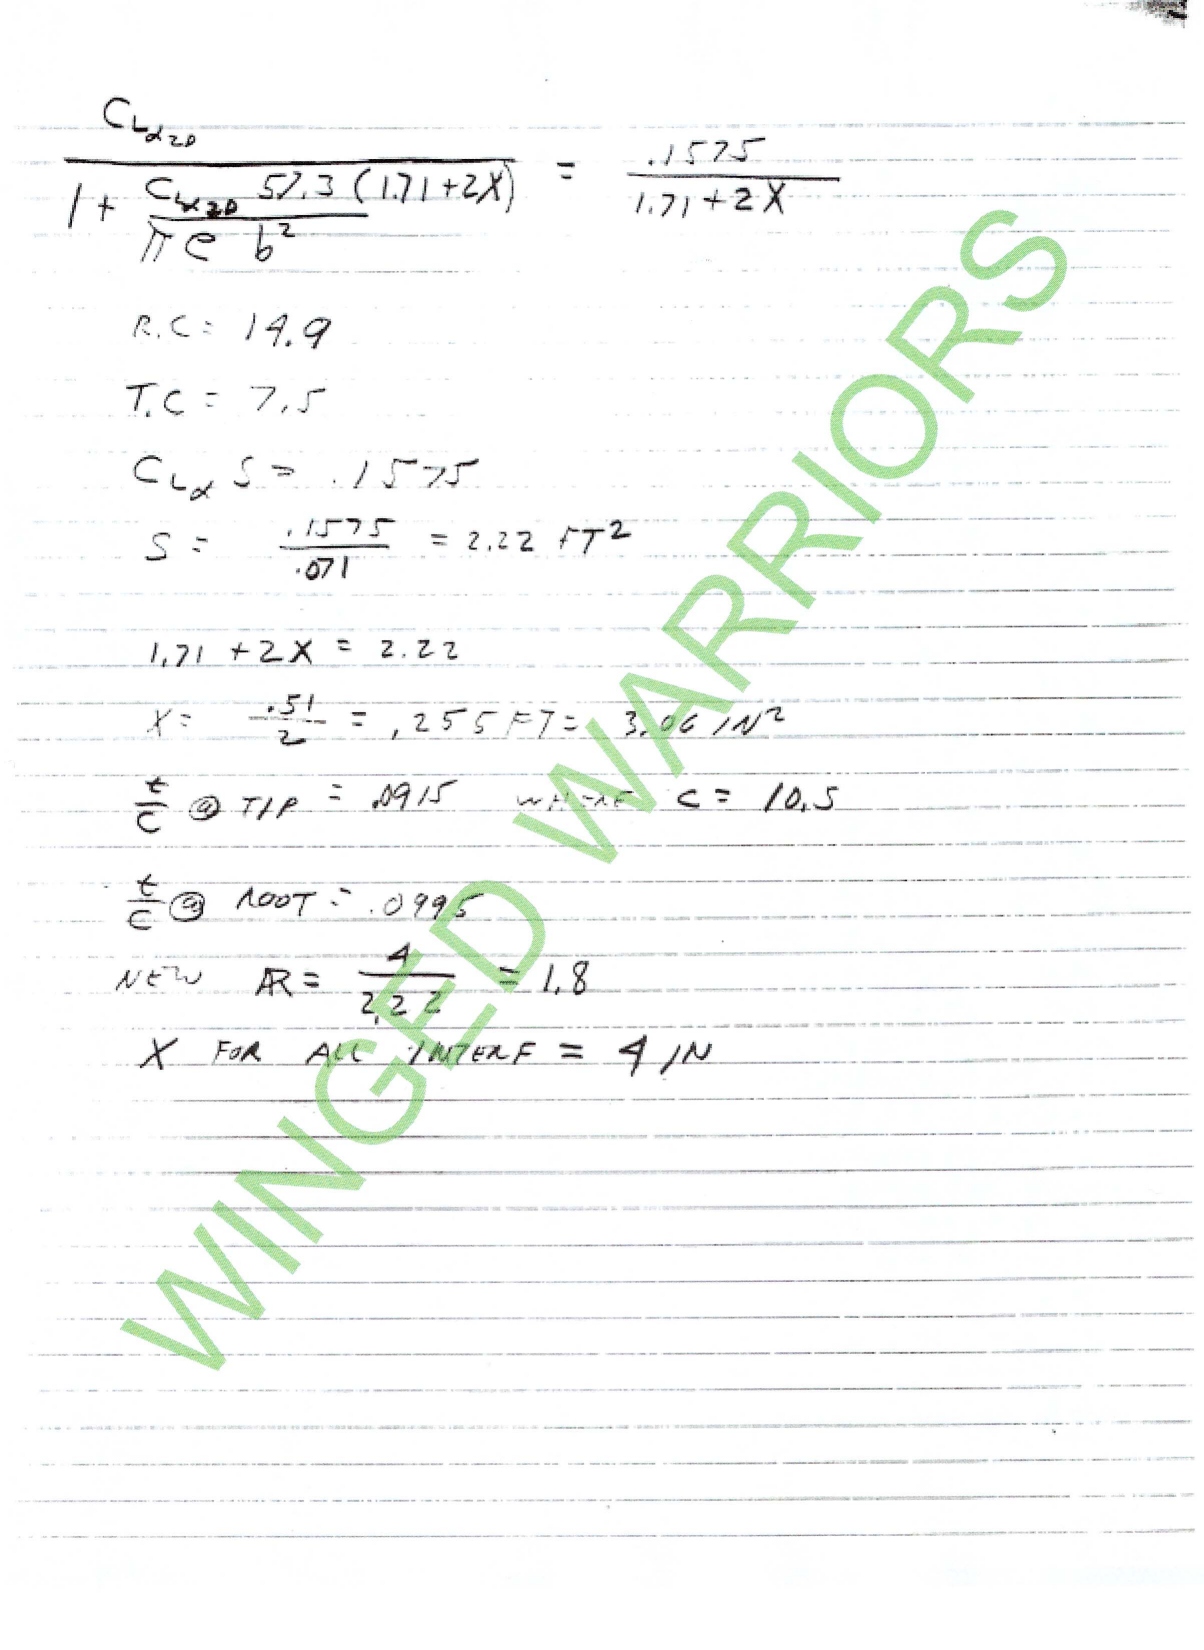 C_Lα2D / (1 + (C_Lα2D 57.3 (1.71+2X)) / (π e b²)) = .1575 / (1.71+2X)
R.C = 14.9
T.C = 7.5
C_Lα S = .1575
S = .1575 / .071 = 2.22 FT²
1.71 + 2X = 2.22
X = .51 / 2 = .255 FT = 3.06 IN²
t/c @ TIP = .0915 WHERE C = 10.5
t/c @ ROOT = .0995
NEW AR = 4 / 2.22 = 1.8
X FOR ALL INTERF = 4 IN
WINGED WARRIORS